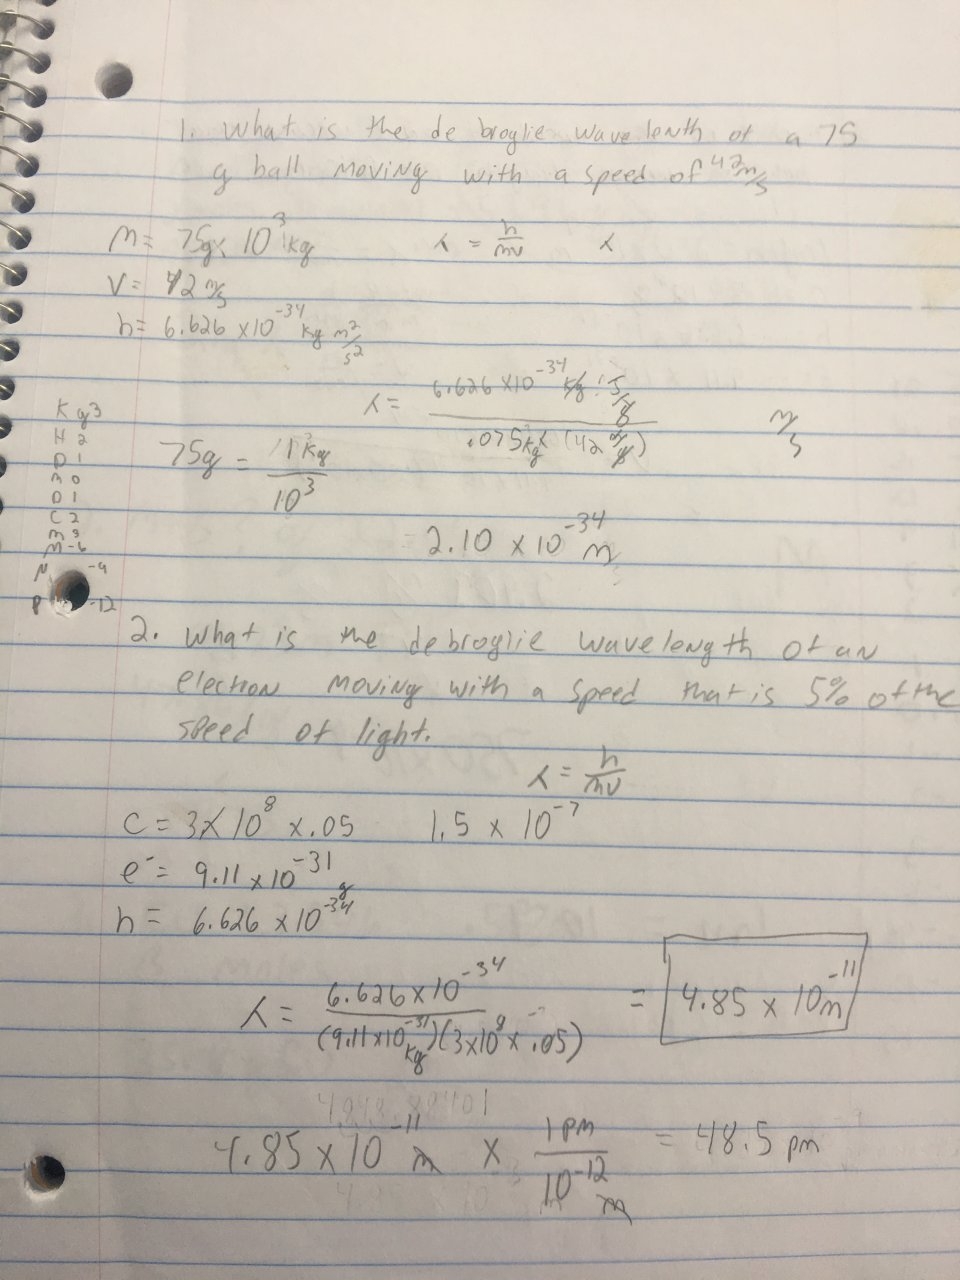 1. What is the de broglie wave lenth of a 75
g ball moving with a speed of 42 m/s
m = 75g × 10³ 1kg
λ = h/mv
λ
V = 42 m/s
h = 6.626 ×10⁻³⁴ kg m²/s²
λ = 6.626 ×10⁻³⁴ / .075kg × (42 m/s)
m/s
K g 3
H 2
D 1
0
D 1
C 2
m 3
M -6
N -9
P -12
75g = 1 kg / 10³
= 2.10 × 10⁻³⁴ m
2. What is the debroglie wavelength of an
electron moving with a speed that is 5% of the
speed of light.
λ = h/mv
C = 3×10⁸ × .05
1.5 × 10⁻⁷
e⁻ = 9.11 ×10⁻³¹ g
h = 6.626 ×10⁻³⁴
λ = 6.626 ×10⁻³⁴ / (9.11×10⁻³¹ kg)(3×10⁸ × .05) = 4.85 × 10⁻¹¹ m
4.85 ×10⁻¹¹ m × 1 pm / 10⁻¹² m = 48.5 pm